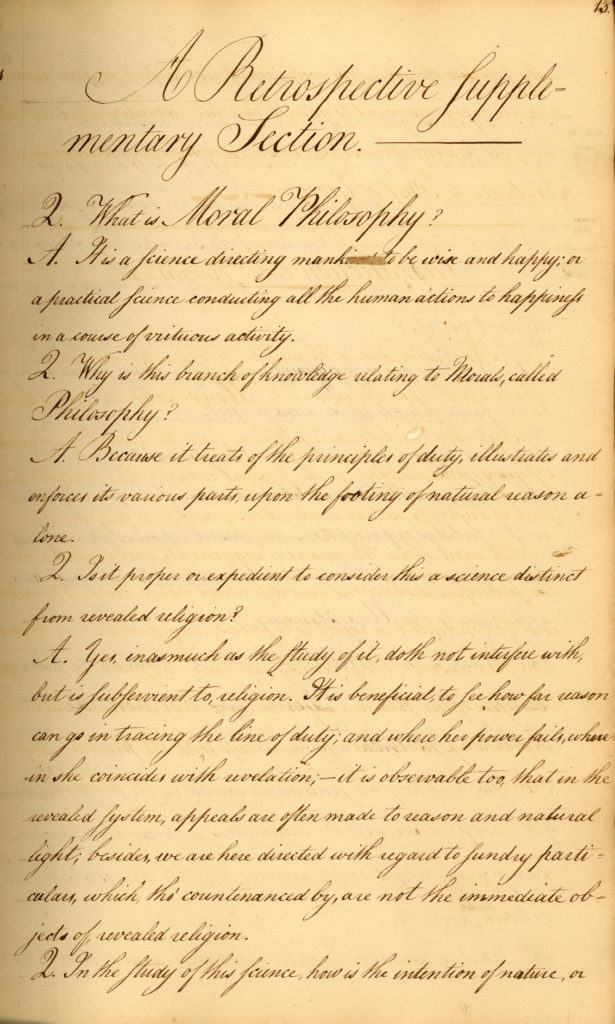 13.
A Retrospective Supple-
mentary Section.
Q. What is Moral Philosophy?
A. It is a science directing mankind to be wise and happy; or
a practical science conducting all the human actions to happiness
in a course of virtuous activity.
Q. Why is this branch of knowledge relating to Morals, called
Philosophy?
A. Because it treats of the principles of duty, illustrates and
enforces its various parts, upon the footing of natural reason a-
lone.
Q. Is it proper or expedient to consider this a science distinct
from revealed religion?
A. Yes, inasmuch as the study of it, doth not interfere with,
but is subservient to, religion. It is beneficial, to see how far reason
can go in tracing the line of duty; and where her power fails, where-
in she coincides with revelation; — it is observable too, that in the
revealed system, appeals are often made to reason and natural
light; besides, we are here directed with regard to sundry parti-
culars, which, tho' countenanced by, are not the immediate ob-
jects of, revealed religion.
Q. In the study of this science, how is the intention of nature, or